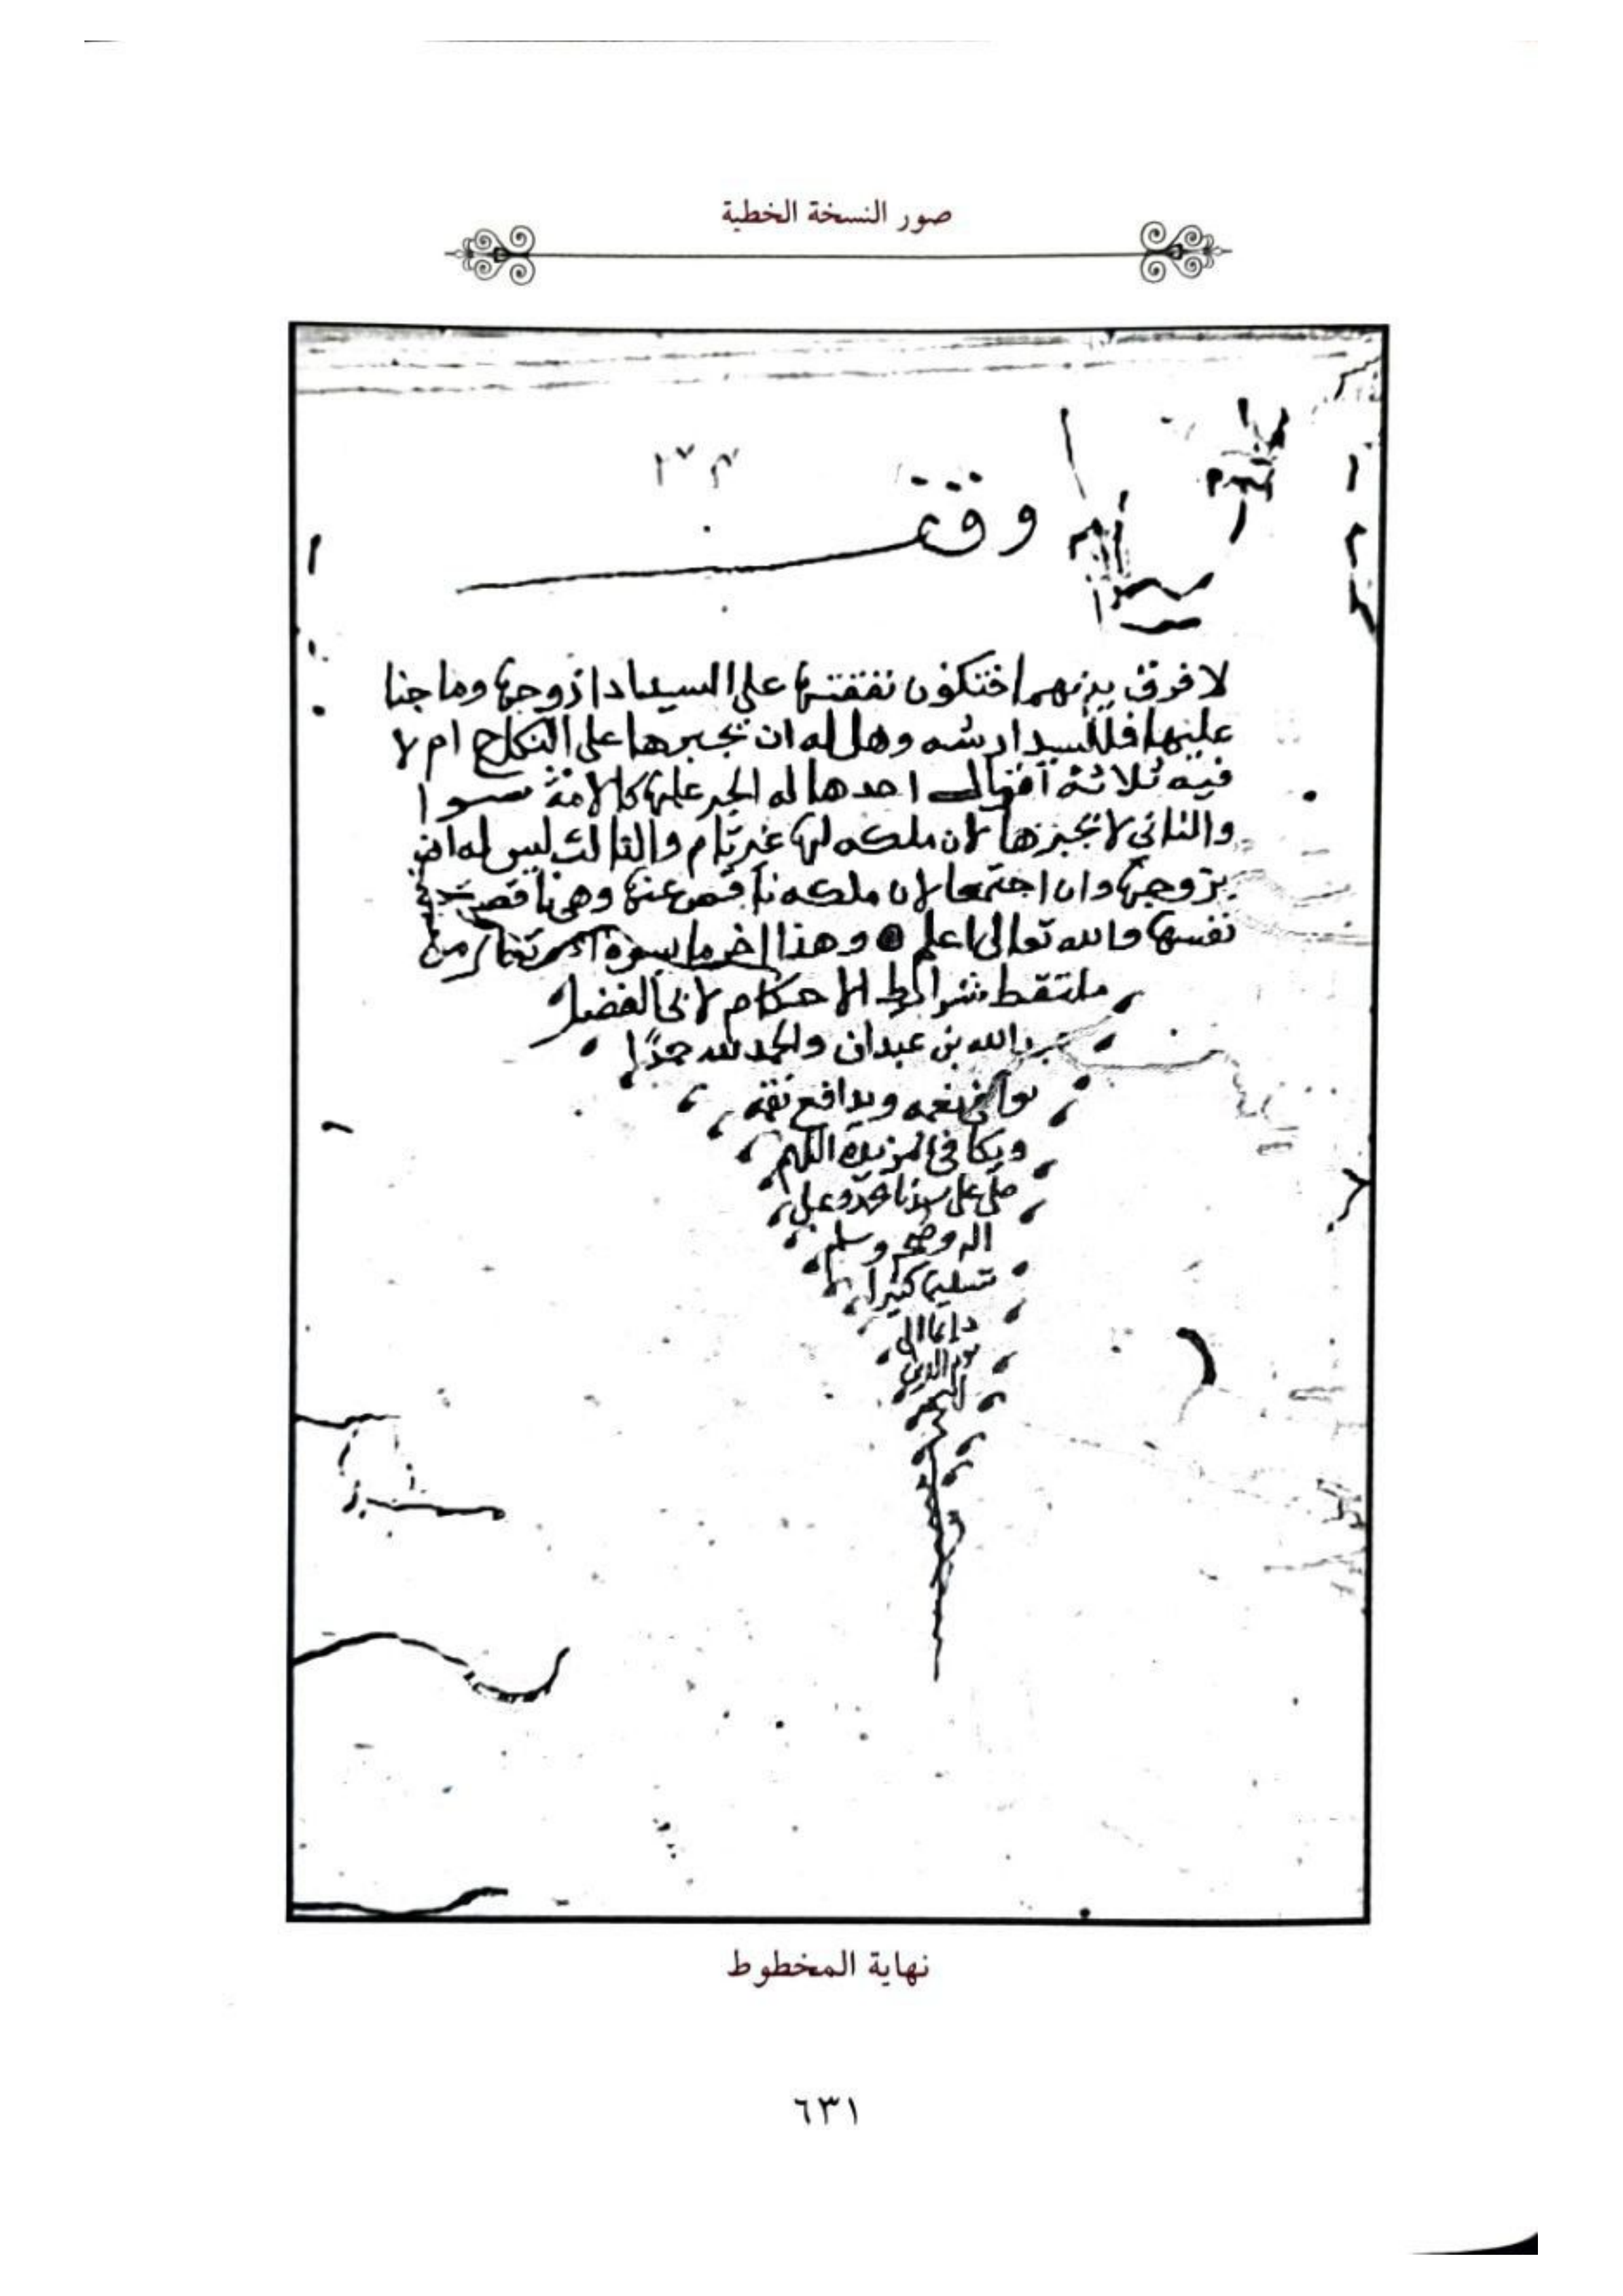 صور النسخة الخطية
وقف
لا فرق بينهما فتكون نفقتها على السيد اذا زوجها وما جنا
عليها فللسيد ارشه وهل له ان يجبرها على النكاح ام لا
فيه ثلاثة اقوال احدها له الجبر عليها كالامة سوا
والثاني لا يجبرها لان ملكه لها غير تام والثالث ليس له ان
يزوجها وان اجتمعا لان ملكه ناقص عنها وهي ناقصة في
نفسها والله تعالى اعلم وهذا اخر ما يسره الله تعالى من
ملتقط شرايط الاحكام لابي الفضل
بن عبدان والحمد لله حمدًا
يوافي نعمه ويدافع نقمه
ويكافي مزيده اللهم
صل على سيدنا محمد وعلى
اله وصحبه وسلم
تسليما كثيرا
دايما الى
يوم الدين
نهاية المخطوط
٦٣١